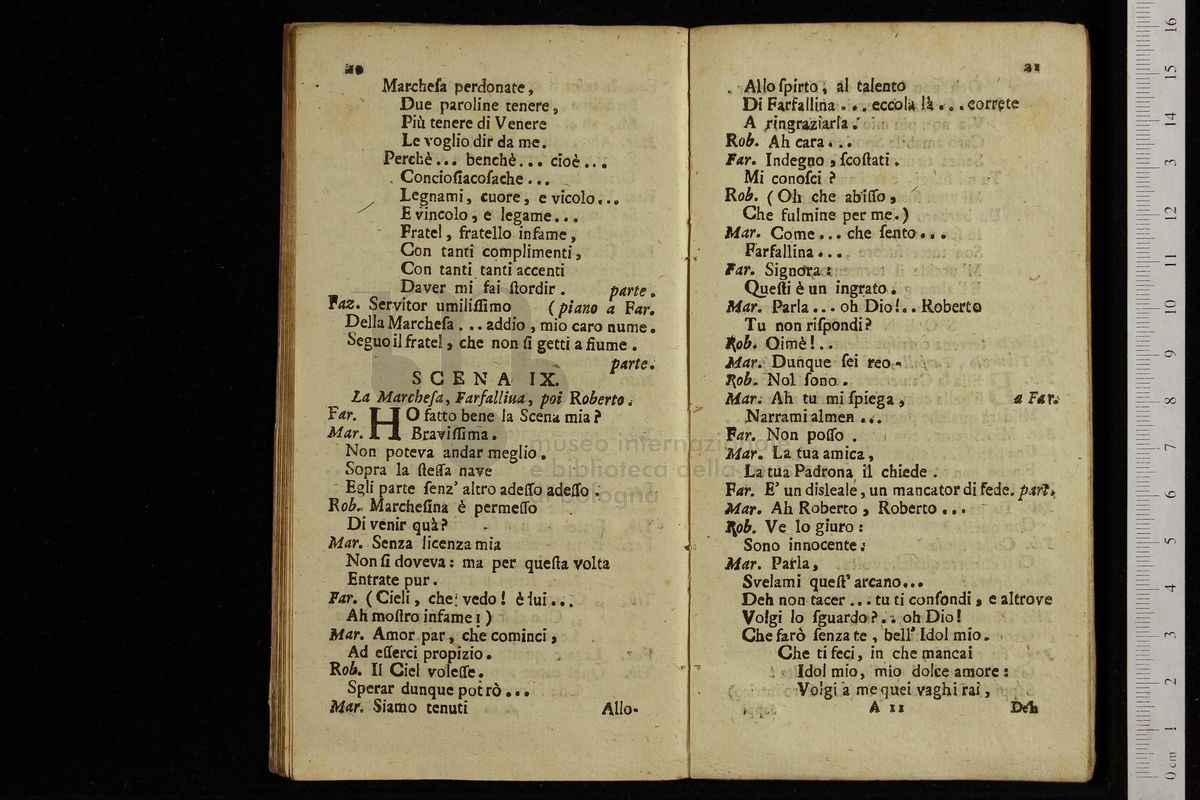 20
Marcheſa perdonate,
Due paroline tenere,
Più tenere di Venere
Le voglio dir da me.
Perchè... benchè... cioè...
Concioſiacoſache...
Legnami, cuore, e vicolo...
E vincolo, e legame...
Fratel, fratello infame,
Con tanti complimenti,
Con tanti tanti accenti
Daver mi fai ſtordir. parte.
Faz. Servitor umiliſſimo (piano a Far.
Della Marcheſa... addio, mio caro nume.
Seguo il fratel, che non ſi getti a fiume.
parte.
SCENA IX.
La Marcheſa, Farfallina, poi Roberto.
Far. HO fatto bene la Scena mia?
Mar. Braviſſima.
Non poteva andar meglio.
Sopra la ſteſſa nave
Egli parte ſenz' altro adeſſo adeſſo.
Rob. Marcheſina è permeſſo
Di venir quà?
Mar. Senza licenza mia
Non ſi doveva: ma per queſta volta
Entrate pur.
Far. (Cieli, che vedo! è lui...
Ah moſtro infame!)
Mar. Amor par, che cominci,
Ad eſſerci propizio.
Rob. Il Ciel voleſſe.
Sperar dunque potrò...
Mar. Siamo tenuti
Allo-
21
Allo ſpirto, al talento
Di Farfallina... eccola là... correte
A ringraziarla.
Rob. Ah cara...
Far. Indegno, ſcoſtati.
Mi conoſci?
Rob. (Oh che abiſſo,
Che fulmine per me.)
Mar. Come... che ſento...
Farfallina...
Far. Signora:
Queſti è un ingrato.
Mar. Parla... oh Dio!.. Roberto
Tu non riſpondi?
Rob. Oimè!..
Mar. Dunque ſei reo-
Rob. Nol ſono.
Mar. Ah tu mi ſpiega, a Far.
Narrami almen...
Far. Non poſſo.
Mar. La tua amica,
La tua Padrona il chiede.
Far. E' un disleale, un mancator di fede. part.
Mar. Ah Roberto, Roberto...
Rob. Ve lo giuro:
Sono innocente:
Mar. Parla,
Svelami queſt' arcano...
Deh non tacer... tu ti confondi, e altrove
Volgi lo ſguardo?.. oh Dio!
Che farò ſenza te, bell' Idol mio.
Che ti feci, in che mancai
Idol mio, mio dolce amore:
Volgi a me quei vaghi rai,
A 11
Deh
museo internazionale
e biblioteca della
di bologna
0 cm 1 2 3 4 5 6 7 8 9 10 11 12 13 14 15 16